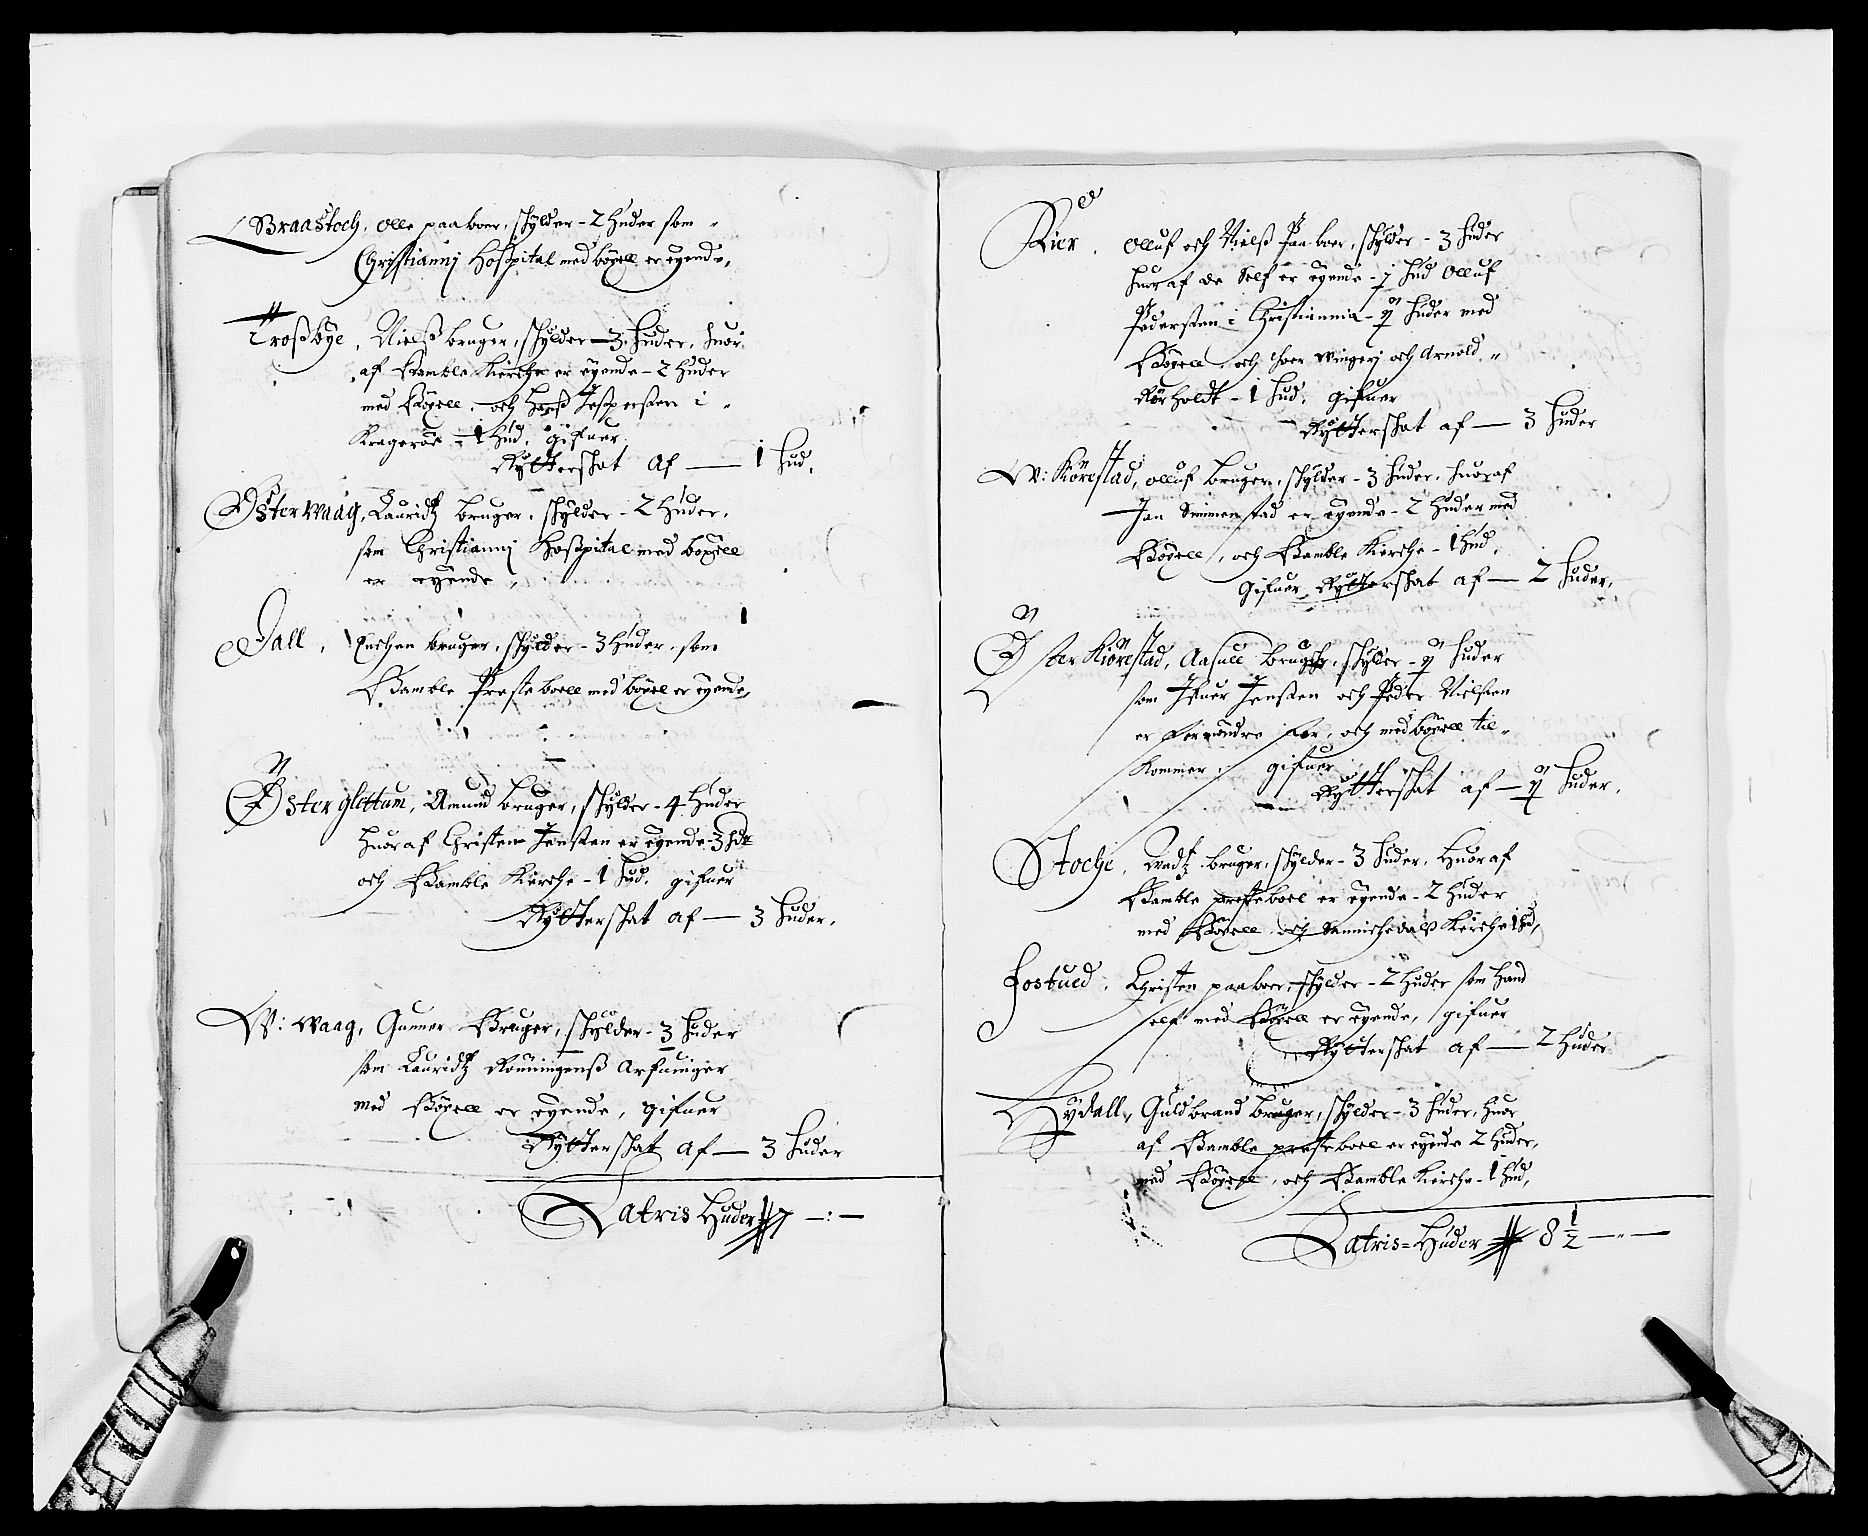 Braastoch, Olle paaboer, schylder - 2 huder som
Christiannj Hospital med böxell er eyende,
Trosbye, Nielß bruger, schylder - 3 huder, huor
af Bamble Kirche er eyende - 2 huder
med Böxell, och Hanß Jespersen i
Kragerøe - 1 hud, gifuer
Rytterschat af — 1 hud,
Østerwaag, Lauridtz bruger, schylder - 2 huder,
som Christiannj Hospital med böxell
er eyende
Dall, bruger, schylder - 3 huder, som
Bamble Presteboell med böxel er eyende,
Øster glettum, Amund bruger, schylder - 4 huder
huoraf Christen Jensen er eyende - 3 hdr
och Bamble Kierche - 1 hud, gifuer
Rytterschat af — 3 huder,
W: waag, Gunner Bruger, schylder - 3 huder
som Lauridtz Rönningenß Arfuinger
med Böxell er eyende, gifuer
Rytterschat af — 3 huder
Latris Huder 7 — : —
Kier, Olluf och Nielß paaboer, schylder - 3 huder
huoraf de self er eyende - ½ hud Olluf
Pedersen i Christiannia - 1½ huder med
Böxell, och Iver Wingerj och Arnold
Rörholdt - 1 hud, gifuer
Rytterschat af — 3 huder
W: Körestad, Olluf bruger, schylder - 3 huder, huoraf
Jan Simmenstad er eyende - 2 huder med
Böxell, och Bamble Kierche - 1 hud,
gifuer Rytterschat af — 2 huder,
Øster Kiörestad, Aasull bruger, schylder - 1½ huder
som Ifuer Jensen och Peder Nielsen
er forundre for, och med böxell til
kommer, gifuer
Rytterschat af — 1½ huder,
Stoche, Madtz bruger, schylder - 3 huder, huoraf
Bamble presteboel er eyende - 2 huder
med Böxell och Sannichedalß Kirche 1 hud,
Fostued, Christen paaboer, schylder - 2 huder som hand
self med Böxell er eyende, gifuer
Rytterschat af — 2 huder
Hydall, Guldbrand bruger, schylder - 3 huder, huor
af Bamble presteboel er eyende 2 huder,
med Böxell, och Bamble Kirche - 1 hud,
Latris = Huder 8 ½ — " —